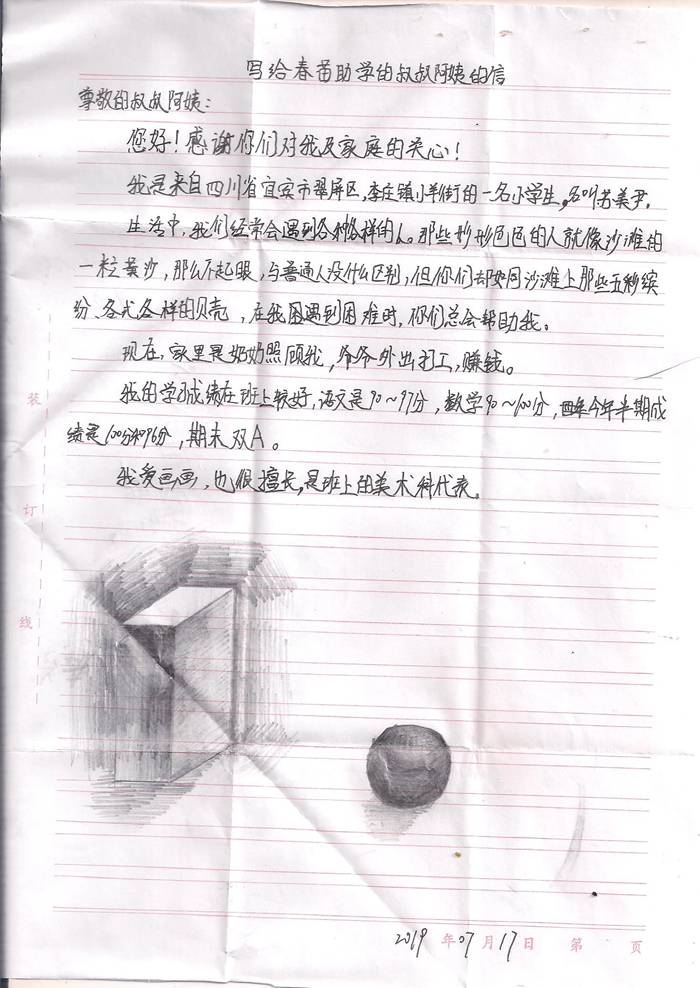 写给春苗助学的叔叔阿姨的信
尊敬的叔叔阿姨：
您好！感谢你们对我及家庭的关心！
我是来自四川省宜宾市翠屏区，李庄镇小羊街的一名小学生，名叫苏美尹。
生活中，我们经常会遇到各种各样的人。那些形形色色的人就像沙滩的
一粒黄沙，那么不起眼，与普通人没什么区别，但你们却如同沙滩上那些五彩缤
纷、各式各样的贝壳，在我遇到困难时，你们总会帮助我。
现在，家里是奶奶照顾我，爷爷外出打工，赚钱。
我的学习成绩在班上较好，语文是90～97分，数学90～100分，今年半期成
绩是100分和96分，期末双A。
我爱画画，也很擅长，是班上的美术科代表。
装
订
线
2019 年 07 月 17 日 第 页